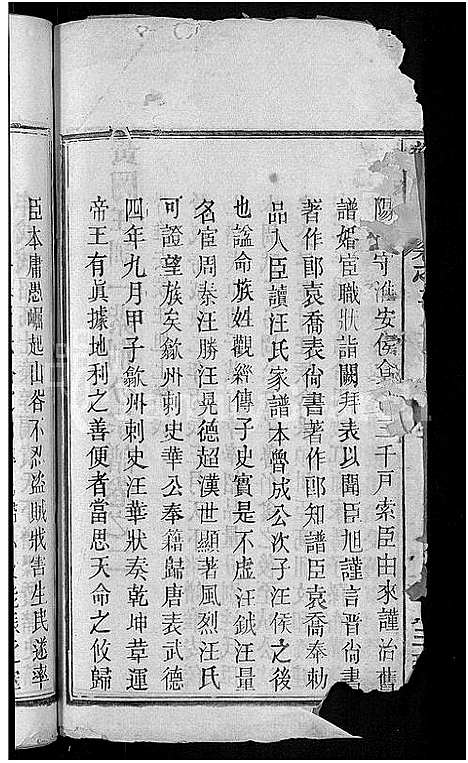 陽守淮安侯食三千戶索臣由來謹治舊
譜婚宦職狀詣闕拜表以聞臣旭謹言晋尙書
著作郎袁喬表尙書著作郎知譜臣袁喬奉勅
品入臣讀汪氏家譜本曾成公次子汪侯之後
也諡命族姓觀經傳子史實是不虛汪鉞汪量
名宦周秦汪勝汪晃德超漢世顯著風烈汪氏
可證望族矣歙州刺史華公奉籍歸唐表武德
四年九月甲子歙州刺史汪華狀奏乾坤草運
帝王有眞據地利之善便者當思天命之攸歸
臣本庸愚崛起山谷不忍盜賊戕害生民遂率